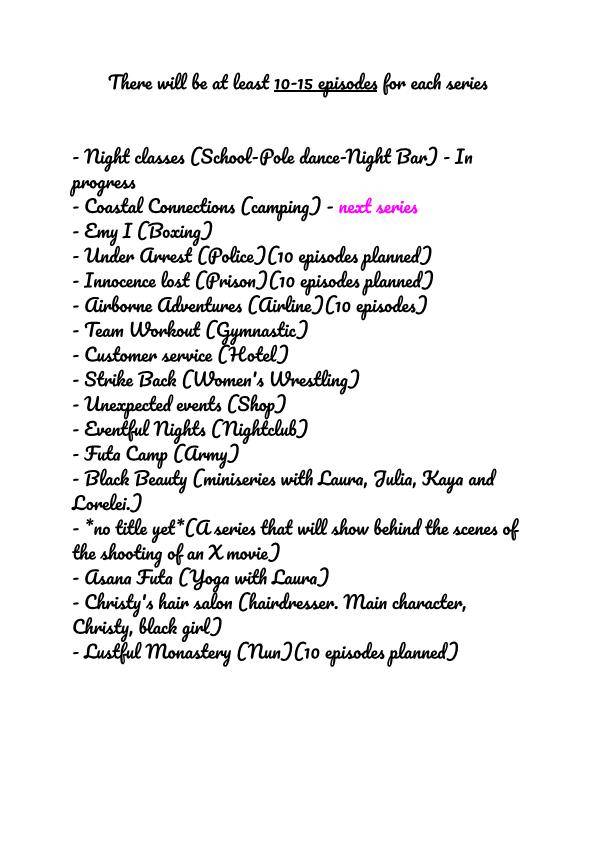 There will be at least 10-15 episodes for each series
- Night classes (School-Pole dance-Night Bar) - In
progress
- Coastal Connections (camping) - next series
- Emy I (Boxing)
- Under Arrest (Police)(10 episodes planned)
- Innocence lost (Prison)(10 episodes planned)
- Airborne Adventures (Airline)(10 episodes)
- Team Workout (Gymnastic)
- Customer service (Hotel)
- Strike Back (Women's Wrestling)
- Unexpected events (Shop)
- Eventful Nights (Nightclub)
- Futa Camp (Army)
- Black Beauty (miniseries with Laura, Julia, Kaya and
Lorelei.)
- *no title yet*(A series that will show behind the scenes of
the shooting of an X movie)
- Asana Futa (Yoga with Laura)
- Christy's hair salon (hairdresser. Main character,
Christy, black girl)
- Lustful Monastery (Nun)(10 episodes planned)